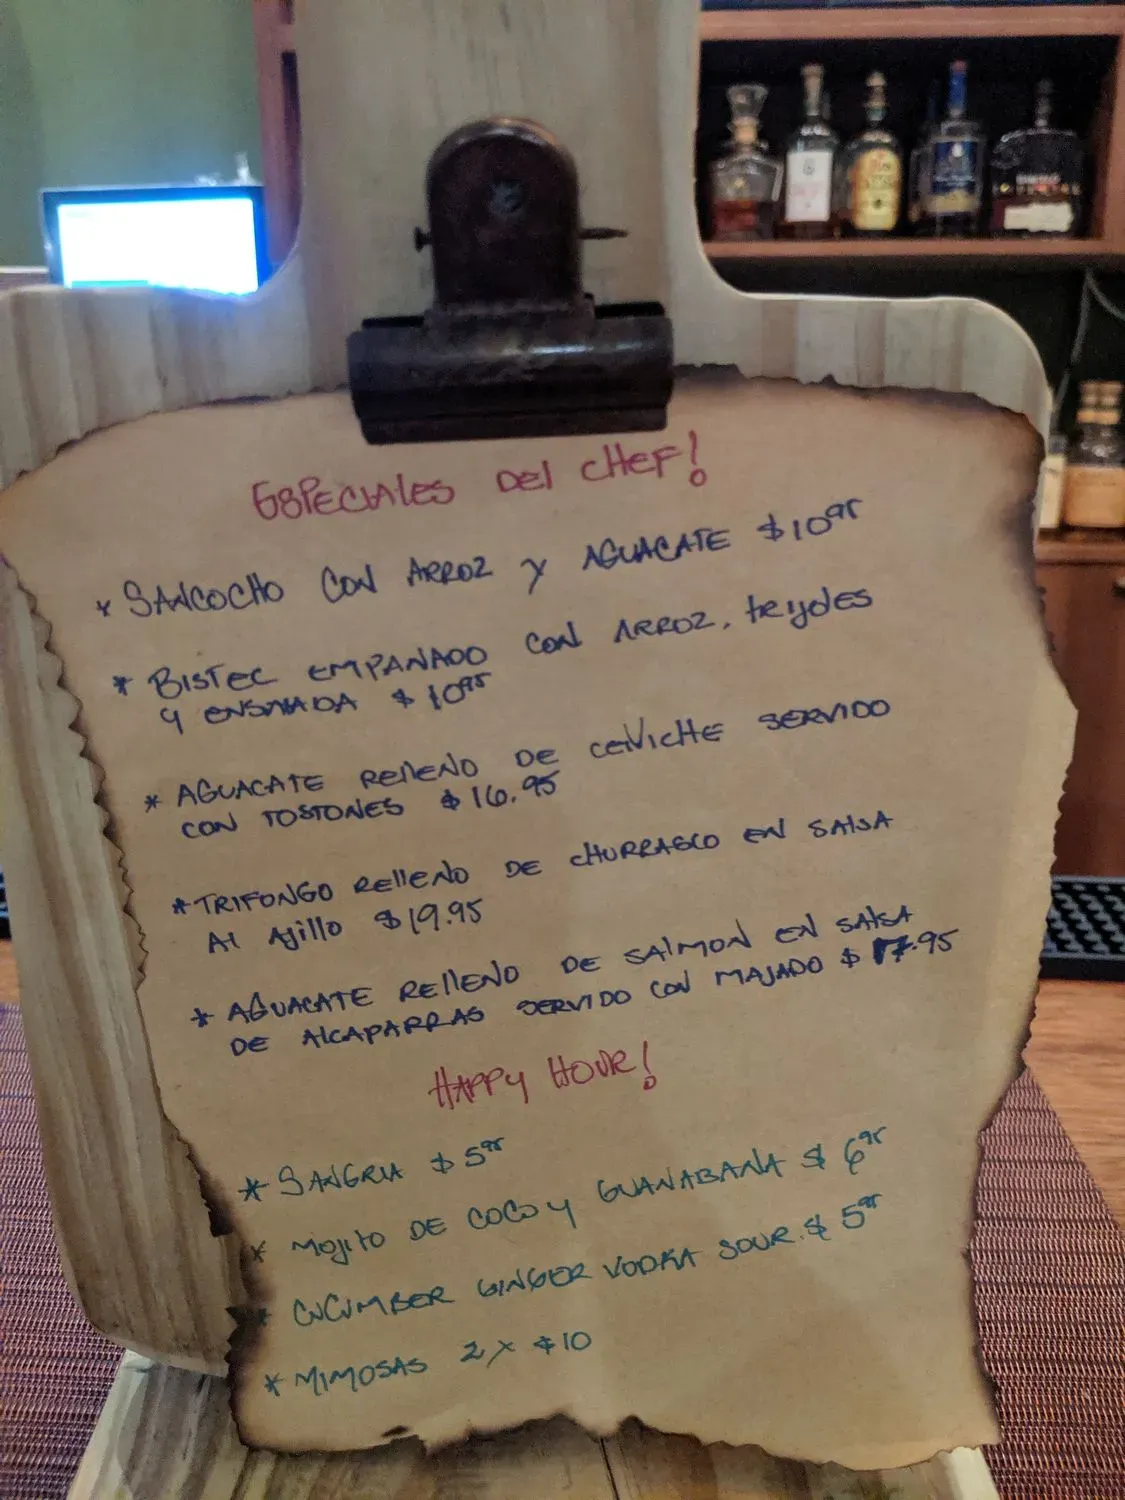 ESPECIALES DEL CHEF!
* SANCOCHO CON ARROZ Y AGUACATE $10.95
* BISTEC EMPANADO CON ARROZ,
Y ENSALADA $10.95
* AGUACATE RELLENO DE CEIVICHE SERVIDO
CON TOSTONES $16.95
* TRIFONGO RELLENO DE CHURRASCO EN SALSA
AL AJILLO $19.95
* AGUACATE RELLENO DE SALMON EN SALSA
DE ALCAPARRAS SERVIDO CON MAJADO $17.95
HAPPY HOUR!
* SANGRIA $5.95
* MOJITO DE COCO Y GUANABANA $6.95
* CUCUMBER GINGER VODKA SOUR. $5.95
* MIMOSAS 2 X $10